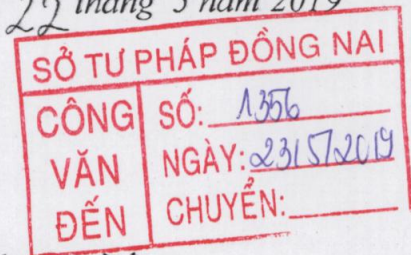 22 tháng 5 năm 2019
SỞ TƯ PHÁP ĐỒNG NAI
CÔNG VĂN ĐẾN
SỐ: 1356
NGÀY: 23/5/2019
CHUYỂN: